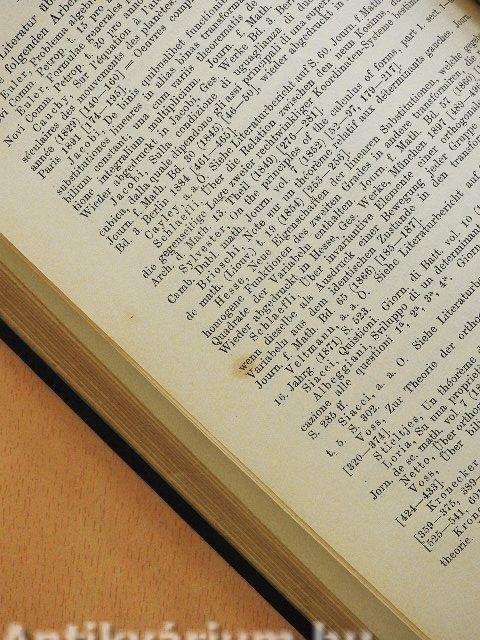 Literatur
folgenden Arbe
Euler, Problema algebr
vi Comm. Petrop. 15 pro
Euler, Formulae generales
Novi Comm. Petrop. 20 pro
Cauchy, Sur l'équation à l'ai
séculaires des mouvements des planètes.
année (1829) [140—160] = Oeuvres comp
Paris 1891 [174—195].
Jacobi, De binis quibuslibet functionib
substitutiones lineares in alias binas transform
constant; una cum variis theorematis de
bilium integralium multiplicium. Journ. f. Math.
Wieder abgedruckt in Jacobi, Ges. Werke Bd. 3, Ber
Jacobi, Sulla condizione di uguaglianza di due
cubica, dalla quale dipendono gli assi principali di una super
Journ. f. Math. Bd. 30 (1845) [46—50], wieder abgedruckt in
Bd. 3, Berlin 1884 [461—465].
Cayley, a. a. O. Siehe Literaturbericht auf S.
Schlaefli, Über die Relation zwischen den neun Kosinus,
die gegenseitige Lage zweier rechtwinkliger Koordinaten-Systeme bestimm
Arch. d. Math. 13. Theil (1849) [276—281].
Sylvester, On the principles of the calculus of forms, part
Camb. Dubl. math. Journ. vol. 7 (1852) [52—97, 179—217].
Brioschi, Note sur un théorème relatif aux déterminants gauches. Journ.
de math. (Liouv.) t. 19 (1854) [253—256].
Hesse, Neue Eigenschaften der linearen Substitutionen, welche
homogene Funktionen des zweiten Grades in andere transformiren, die
Quadrate der Variabeln enthalten. Journ. f. Math. Bd. 57 (1860)
Wieder abgedruckt in Hesse, Ges. Werke, München 1897 [489—496]
Schlaefli, Über invariantive Elemente einer orthogonalen
wenn dieselbe als Ausdruck einer Bewegung jeder Gruppe
Variabeln aus dem identischen Zustande in den transfor
Journ. f. Math. Bd. 65 (1866) [185—187].
Veltmann, a. a. O. Siehe Literaturbericht auf
16. Jahrg. (1871) S. 523.
Siacci, Questioni. Giorn. di Batt. vol. 10 (1
Albeggiani, Sviluppo di un determinan
cazione alle questioni 1ª, 2ª, 3ª, 4ª. Giorn
S. 285 ff.
Siacci, a. a. O. Siehe Literaturbe
t. 5, S. 302.
Voss, Zur Theorie der ortho
[320—374].
Stieltjes, Un théorème
Loria, Su una proprietà
Jorn. de sc. math. vol. 7 (18
Netto, Über orthog
Voss, Über bil
[424—433].
Kronecker
[359—375, 389—
[525—541, 691
Kron
theorie.
Antikvárium.hu